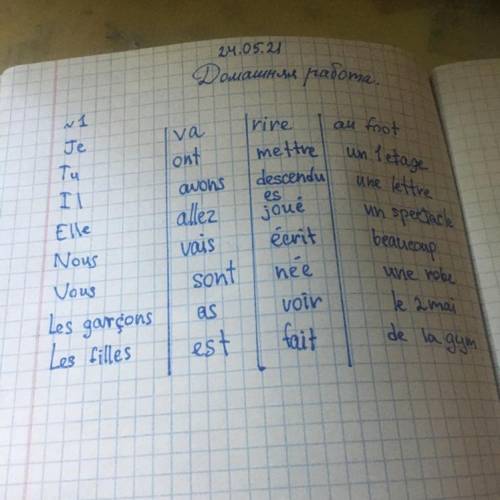 24.05.21
Домашняя работа.
~1
Je va rire au foot
Tu ont mettre un 1 etage
Il avons descendues une lettre
Elle allez joué un spectacle
Nous vais écrit beaucoup
Vous sont née une robe
Les garçons as voir le 2 mai
Les filles est fait de la gym